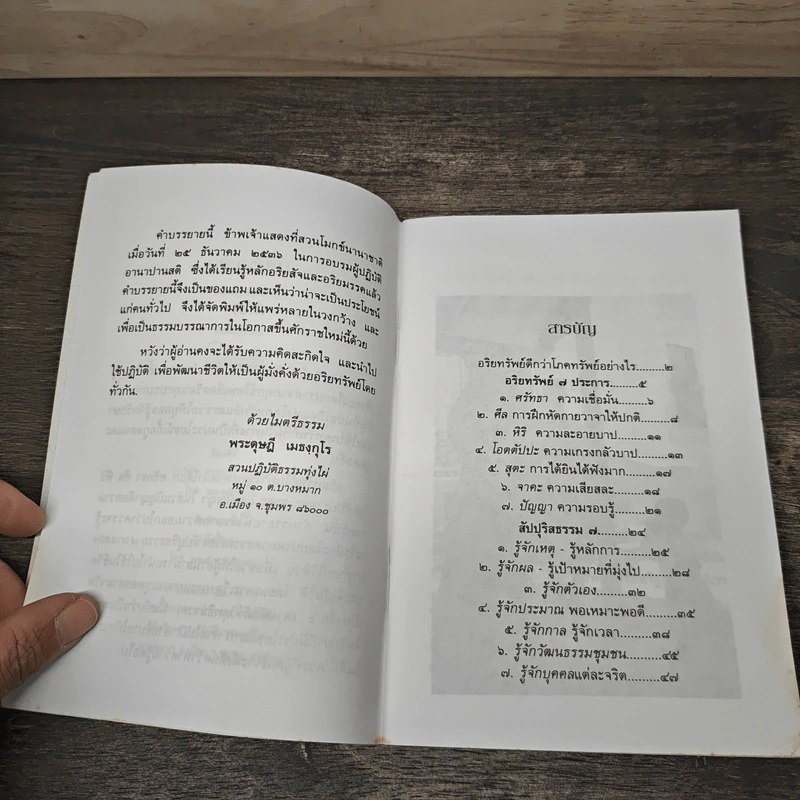 คำบรรยายนี้ ข้าพเจ้าแสดงที่สวนโมกข์นานาชาติ
เมื่อวันที่ ๒๕ ธันวาคม ๒๕๓๖ ในการอบรมผู้ปฏิบัติ
อานาปานสติ ซึ่งได้เรียนรู้หลักอริยสัจและอริยมรรคแล้ว
คำบรรยายนี้จึงเป็นของแถม และเห็นว่าน่าจะเป็นประโยชน์
แก่คนทั่วไป จึงได้จัดพิมพ์ให้แพร่หลายในวงกว้าง และ
เพื่อเป็นธรรมบรรณาการในโอกาสขึ้นศักราชใหม่นี้ด้วย
หวังว่าผู้อ่านคงจะได้รับความคิดสะกิดใจ และนำไป
ใช้ปฏิบัติ เพื่อพัฒนาชีวิตให้เป็นผู้มั่งคั่งด้วยอริยทรัพย์โดย
ทั่วกัน.
ด้วยไมตรีธรรม
พระดุษฎี เมธงฺกุโร
สวนปฏิบัติธรรมทุ่งไผ่
หมู่ ๑๐ ต.บางหมาก
อ.เมือง จ.ชุมพร ๘๖๐๐๐
สารบัญ
อริยทรัพย์ดีกว่าโภคทรัพย์อย่างไร.........๒
อริยทรัพย์ ๗ ประการ.........๕
๑. ศรัทธา ความเชื่อมั่น.........๖
๒. ศีล การฝึกหัดกายวาจาให้ปกติ.........๘
๓. หิริ ความละอายบาป.........๑๑
๔. โอตตัปปะ ความเกรงกลัวบาป.........๑๓
๕. สุตะ การได้ยินได้ฟังมาก.........๑๗
๖. จาคะ ความเสียสละ.........๑๘
๗. ปัญญา ความรอบรู้.........๒๑
สัปปุริสธรรม ๗.........๒๔
๑. รู้จักเหตุ - รู้หลักการ.........๒๕
๒. รู้จักผล - รู้เป้าหมายที่มุ่งไป.........๒๘
๓. รู้จักตัวเอง.........๓๒
๔. รู้จักประมาณ พอเหมาะพอดี.........๓๕
๕. รู้จักกาล รู้จักเวลา.........๓๘
๖. รู้จักวัฒนธรรมชุมชน.........๔๕
๗. รู้จักบุคคลแต่ละจริต.........๔๗